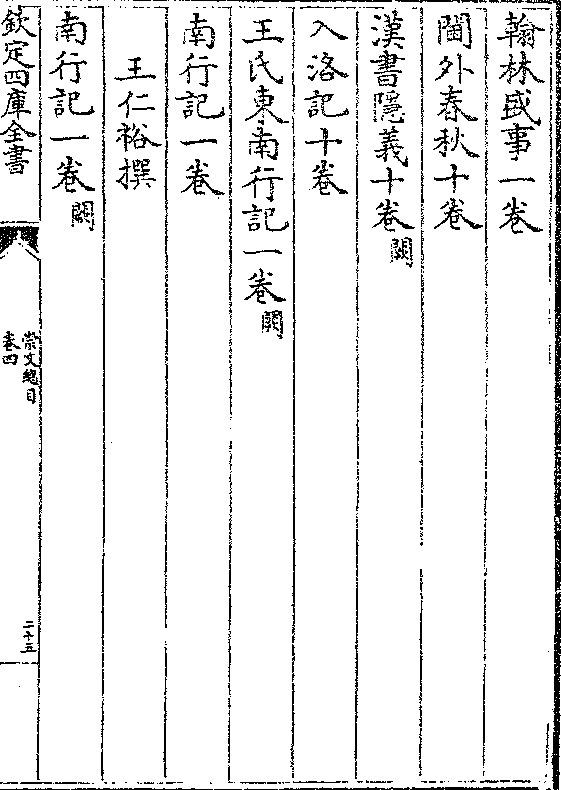 翰林盛事一卷
閫外春秋十卷
漢書隱義十卷闕
入洛記十卷
王氏東南行記一卷闕
南行記一卷
王仁裕撰
南行記一卷闕
欽定四庫全書
崇文總目
卷四
二十五